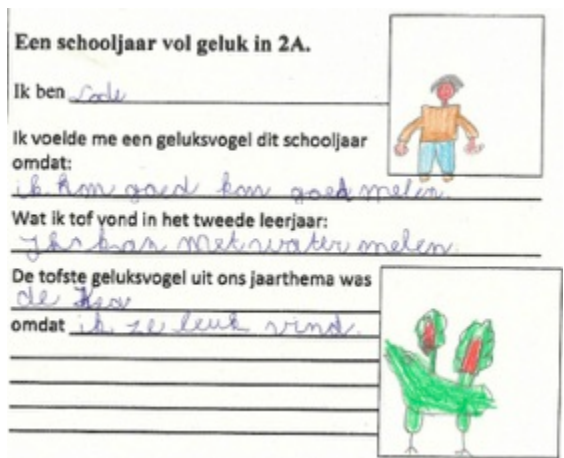 Een schooljaar vol geluk in 2A.
Ik ben Lode
Ik voelde me een geluksvogel dit schooljaar
omdat:
ik kon goed kon goed melen.
Wat ik tof vond in het tweede leerjaar:
Ik kon met water melen.
De tofste geluksvogel uit ons jaarthema was
de
omdat ik ze leuk vind.